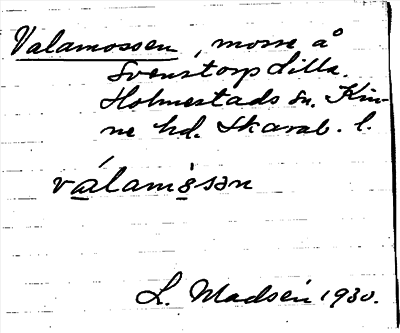 Valamossen, mosse å
Svenstorps lilla.
Holmestads sn. Kin-
ne hd. Skarab. l.
válamòsən
L. Madsén 1930.